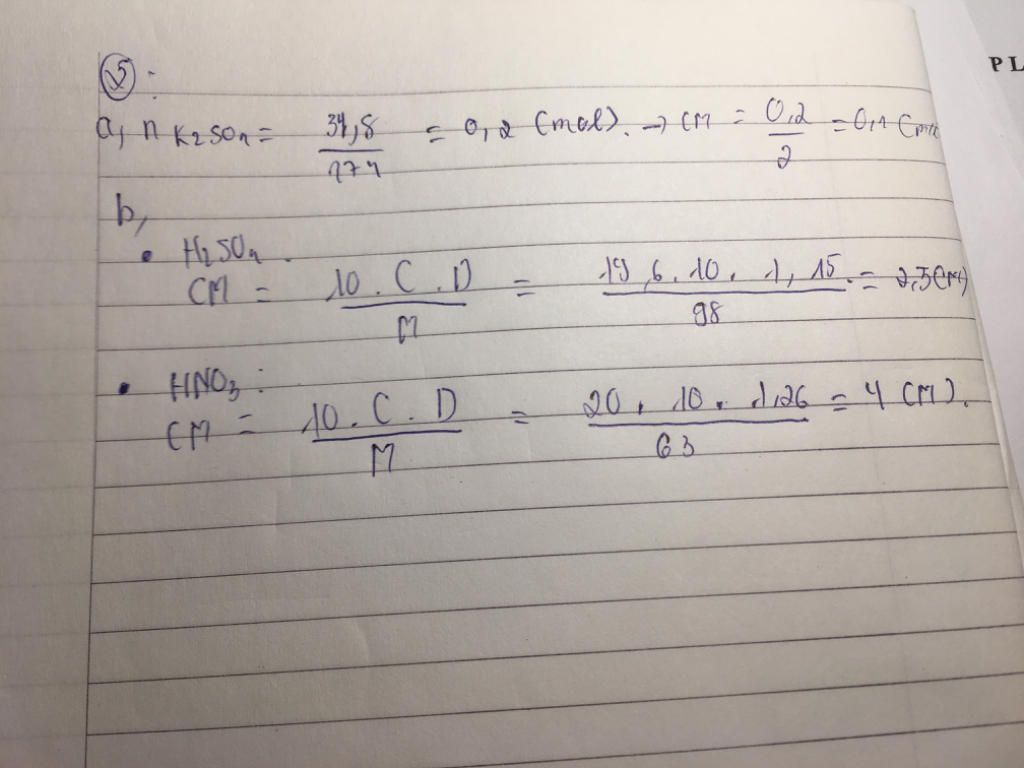 PL
5 :
a, n K2SO4 = 34,8 / 174 = 0,2 (mol). → CM = 0,2 / 2 = 0,1
b,
• H2SO4.
CM = 10 . C . D / M = 19,6 . 10 . 1,15 / 98 = 2,3 (M)
• HNO3 :
CM = 10 . C . D / M = 20 . 10 . 1,26 / 63 = 4 (M).